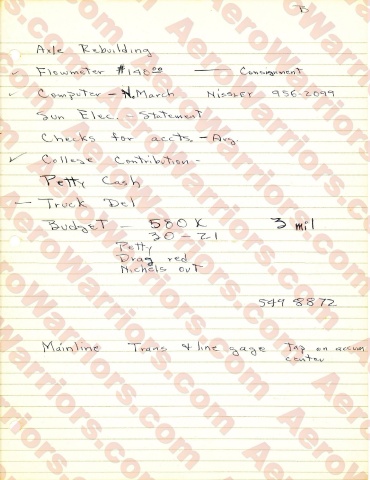 B
Axle Rebuilding
✓ Flowmeter #140.00 — Consignment
✓ Computer – N. March Nissley 956-2099
Sun Elec. – Statement
Checks for accts. – Aug.
✓ College Contribution –
Petty Cash
– Truck Del
Budget – 580 K 3 mil
30 – 21
Petty
Drag red
Nichels out
549 8872
Mainline Trans 4 line gage Tap on accum
center
AeroWarriors.com